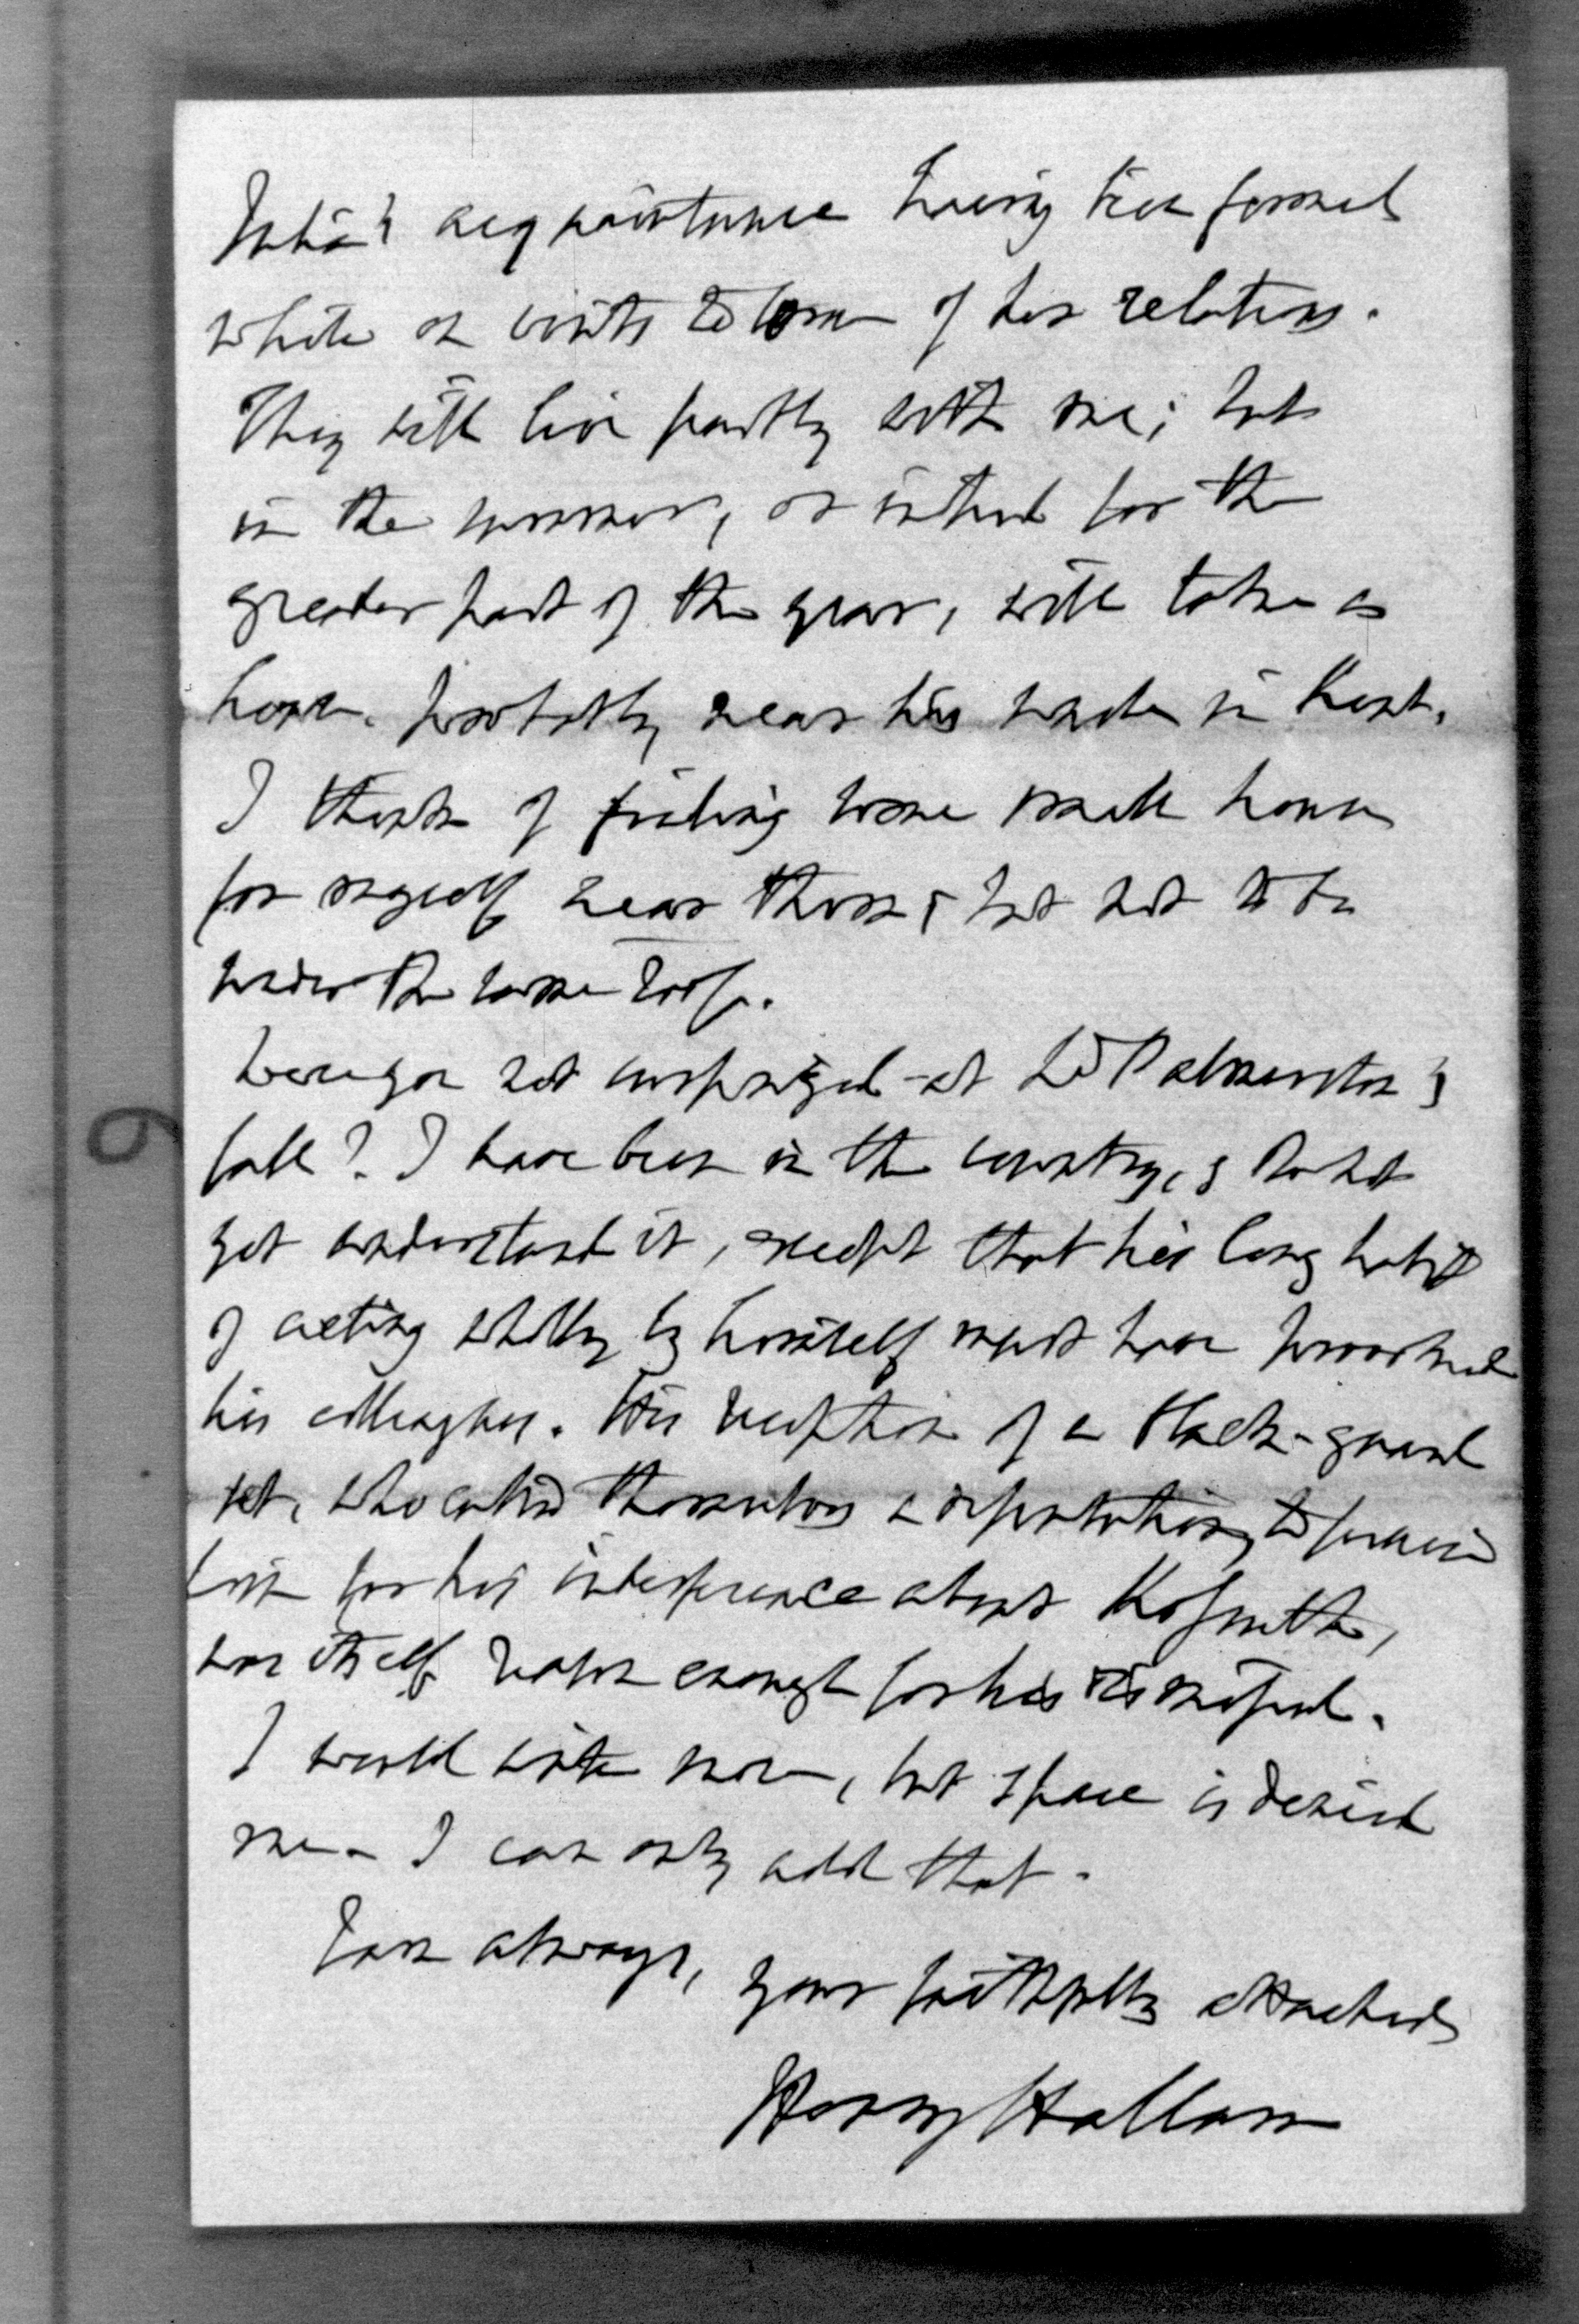 Julia's acquaintance having been formed
while on visits to some of her relations.
They will live partly with me; but
in the summer, or indeed for the
greater part of the year, will take a
house, probably near his uncle in Kent.
I think of finding some small house
for myself near them; but not to be
under the same roof.
Were you not surprized at Ld Palmerston's
fall? I have been in the country, & do not
yet understand it, except that his long habit
of acting wholly by himself must have provoked
his colleagues. His reception of a black-guard
set, who called themselves a deputation, to
him for his interference about Kossuth,
was itself reason enough for his removal.
I would write more, but space is denied
me - I can only add that -
I am always, yours faithfully attached
Henry Hallam
6